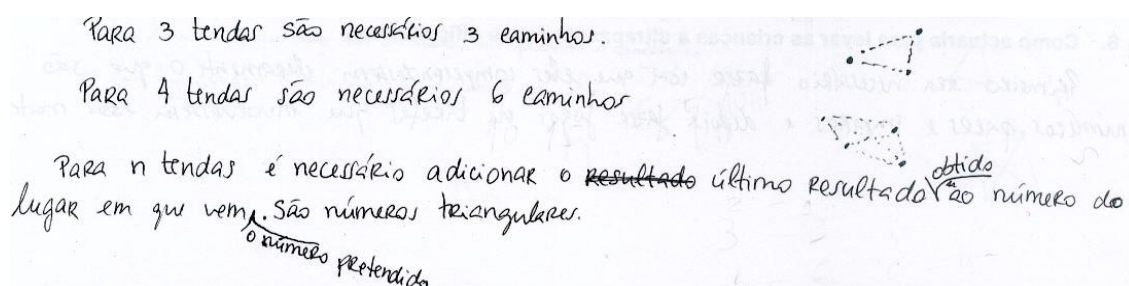 Para 3 tendas são necessários 3 caminhos.
Para 4 tendas são necessários 6 caminhos
Para n tendas é necessário adicionar o resultado último resultado obtido ao número do
lugar em que vem o número pretendido. São números triangulares.